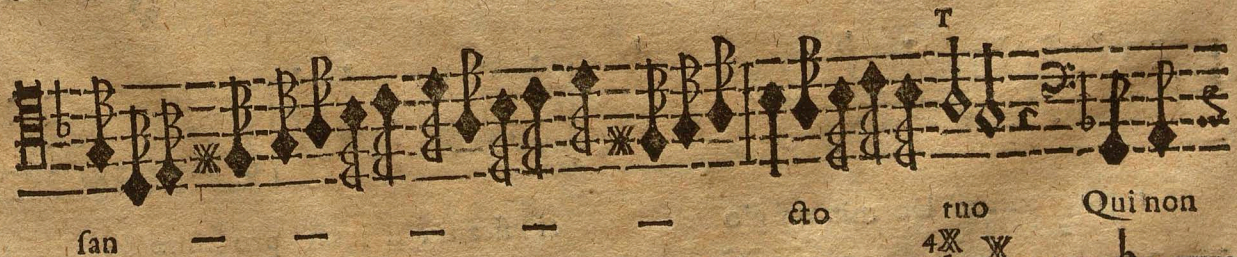 T
ſan — — — — — cto tuo Qui non
4